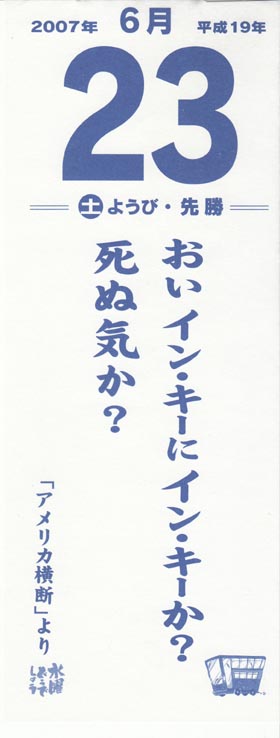 2007年 6月 平成19年
23
土ようび・先勝
おい イン・キーに イン・キーか?
死ぬ気か?
「アメリカ横断」より
水曜
どうで
しょう